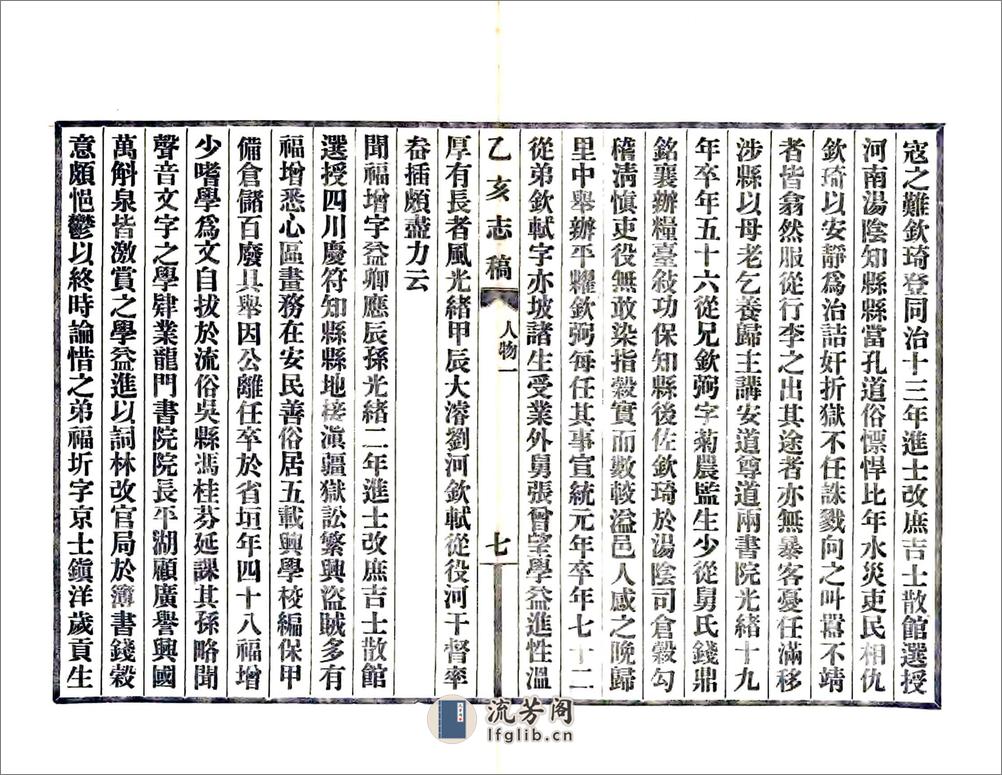 寇之難欽琦登同治十三年進士改庶吉士散館選授
河南湯陰知縣縣當孔道俗慓悍比年水災吏民相仇
欽琦以安靜爲治詰奸折獄不任誅戮向之叫囂不靖
者皆翕然服從行李之出其途者亦無暴客憂任滿移
涉縣以母老乞養歸主講安道尊道兩書院光緒十九
年卒年五十六從兄欽弼字菊農監生少從舅氏錢鼎
銘襄辦糧臺敍功保知縣後佐欽琦於湯陰司倉穀勾
稽清慎吏役無敢染指穀實而數較溢邑人感之晚歸
里中舉辦平糶欽弼每任其事宣統元年卒年七十二
從弟欽軾字亦坡諸生受業外舅張曾望學益進性溫
乙亥志稿
人物一
七
厚有長者風光緒甲辰大濬劉河欽軾從役河干督率
畚插頗盡力云
聞福增字益卿應辰孫光緒二年進士改庶吉士散館
選授四川慶符知縣縣地接滇疆獄訟繁興盜賊多有
福增悉心區畫務在安民善俗居五載興學校編保甲
備倉儲百廢具舉因公離任卒於省垣年四十八福增
少嗜學爲文自拔於流俗吳縣馮桂芬延課其孫略聞
聲音文字之學肄業龍門書院院長平湖顧廣譽興國
萬斛泉皆激賞之學益進以詞林改官局於簿書錢穀
意頗悒鬱以終時論惜之弟福圻字京士鎮洋歲貢生
流芳阁
lfglib.cn